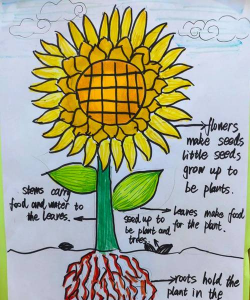 flowers
make seeds
little seeds
grow up to
be plants.
stems carry
food and water to
the leaves.
seed up to
be plant and
trees.
leaves make food
for the plant.
roots hold the
plant in the